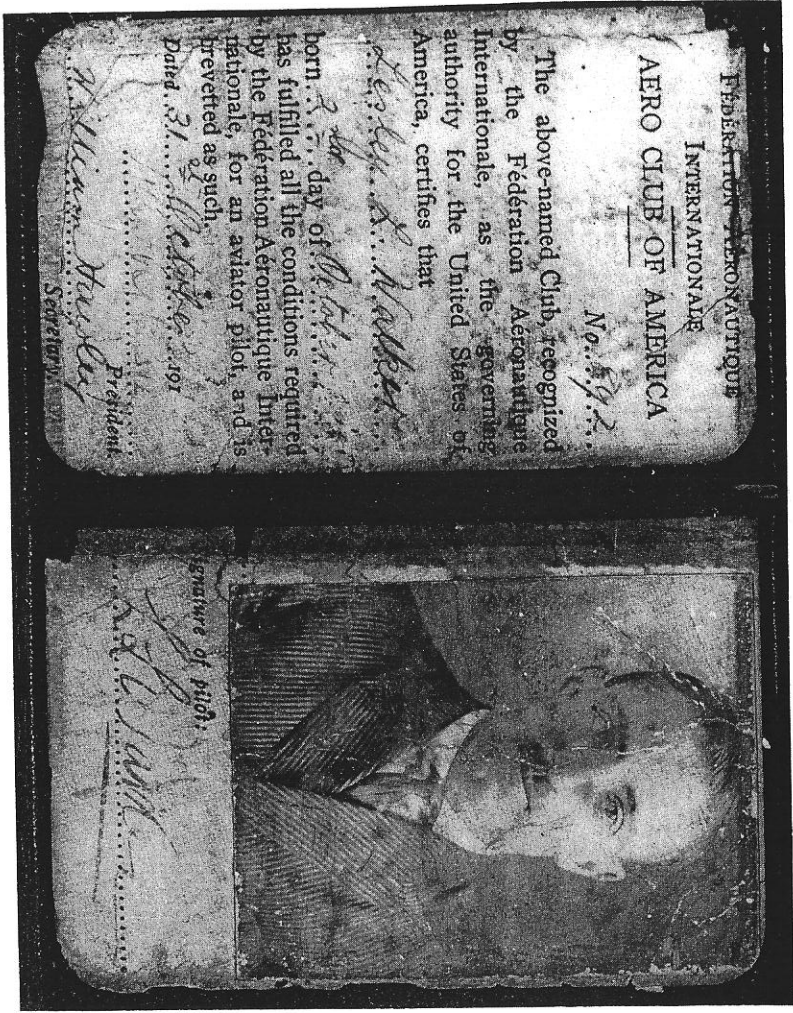 FÉDÉRATION AÉRONAUTIQUE
INTERNATIONALE
AERO CLUB OF AMERICA
No. 592
The above-named Club, recognized
by the Fédération Aéronautique
Internationale, as the governing
authority for the United States of
America, certifies that
L. Walker
born day of October
has fulfilled all the conditions required
by the Fédération Aéronautique Inter-
nationale, for an aviator pilot, and is
brevetted as such.
Dated 31st 191
President.
William Hawley
Secretary.
Signature of pilot: